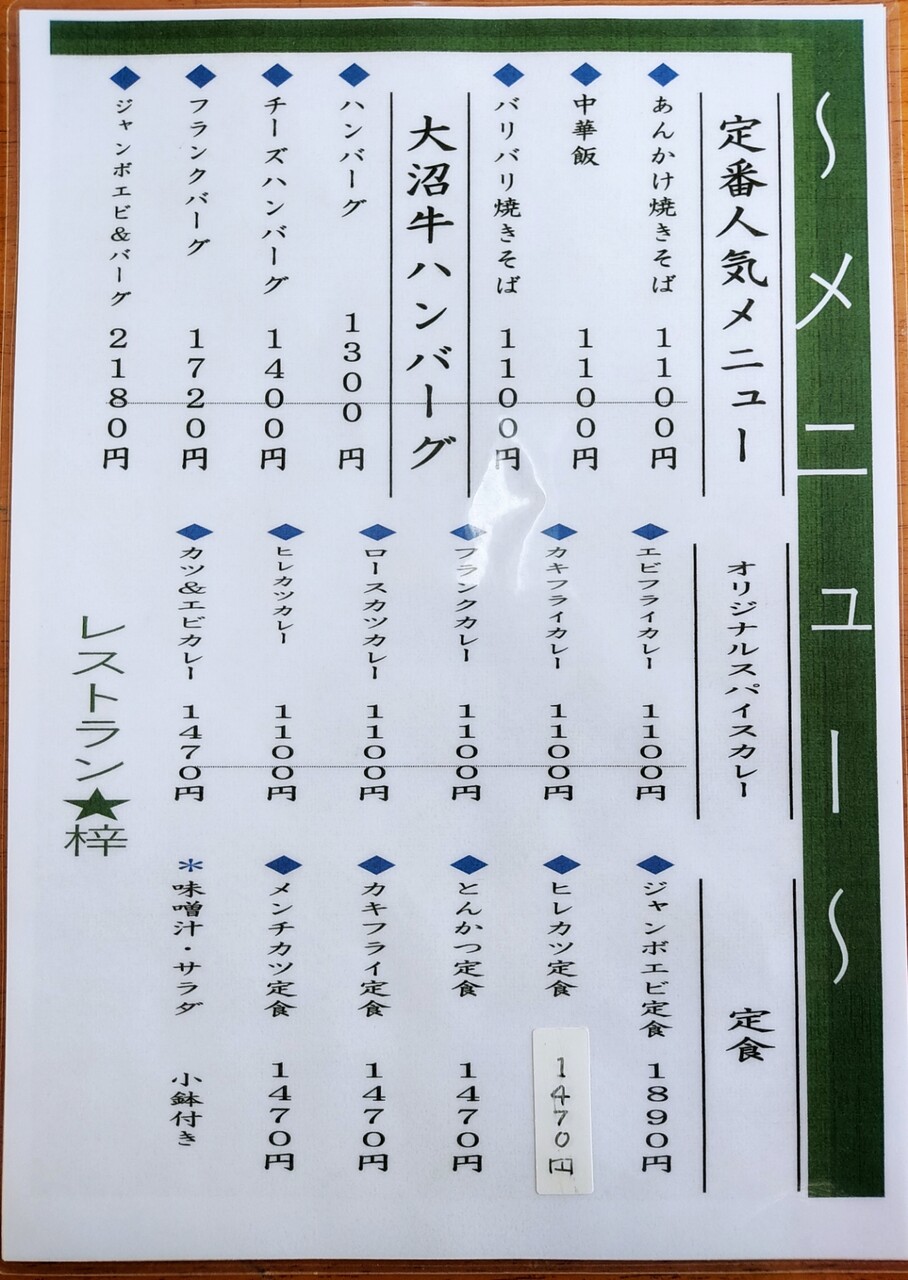 ～メニュー～
定番人気メニュー
あんかけ焼きそば 1100円
中華飯 1100円
バリバリ焼きそば 1100円
大沼牛ハンバーグ
ハンバーグ 1300円
チーズハンバーグ 1400円
フランクバーグ 1720円
ジャンボエビ&バーグ 2180円
オリジナルスパイスカレー
エビフライカレー 1100円
カキフライカレー 1100円
フランクカレー 1100円
ロースカツカレー 1100円
ヒレカツカレー 1100円
カツ&エビカレー 1470円
定食
ジャンボエビ定食 1890円
ヒレカツ定食 1470円
とんかつ定食 1470円
カキフライ定食 1470円
メンチカツ定食 1470円
*味噌汁・サラダ 小鉢付き
レストラン★梓